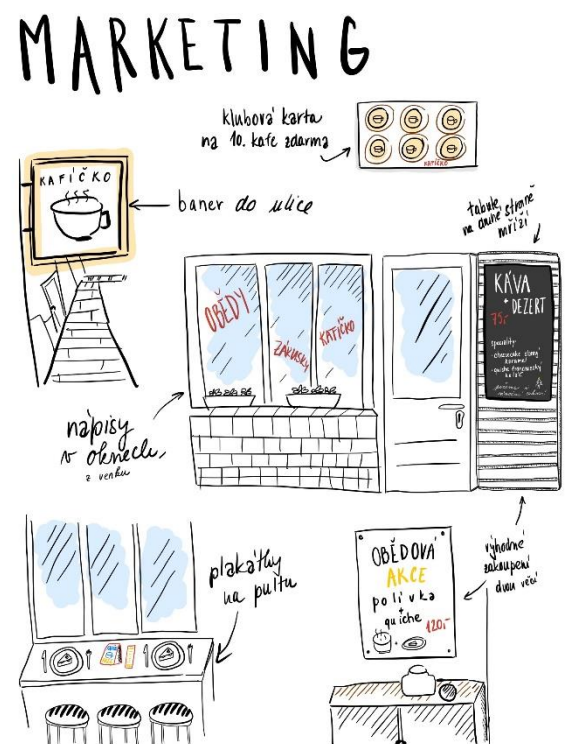 MARKETING
klubová karta
na 10. kafe zdarma
KAFÍČKO
KAFÍČKO
baner do ulice
tabule
na druhé straně
mříží
OBĚDY
ZÁKUSKY
KAFÍČKO
KÁVA
+
DEZERT
75,-
speciality:
slaný
karamel
nápisy
v oknech,
z venku
plakátky
na pultu
OBĚDOVÁ
AKCE
polívka
+
quiche
120,-
+
výhodné
zakoupení
dvou věcí